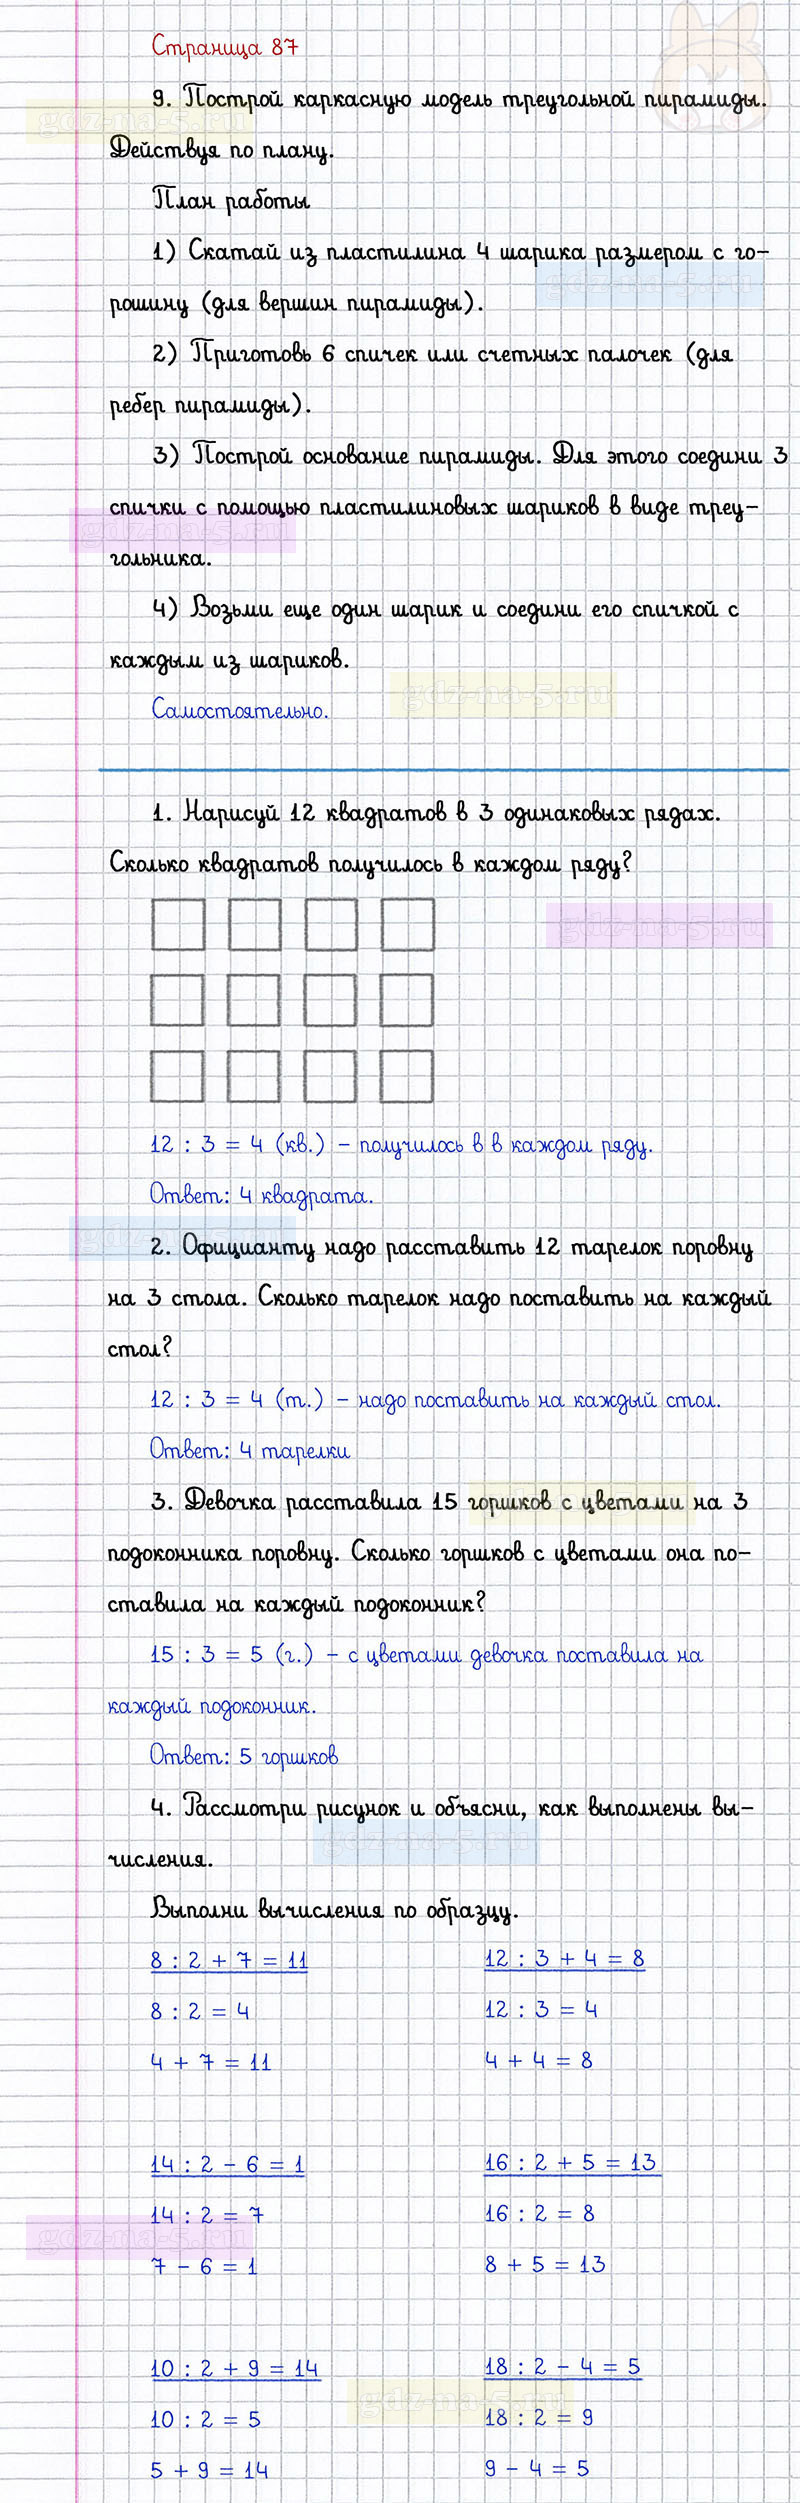 Страница 87
9. Построй каркасную модель треугольной пирамиды.
gdz-na-5.ru
Действуя по плану.
План работы
1) Скатай из пластилина 4 шарика размером с го-
gdz-na-5.ru
рошину (для вершин пирамиды).
2) Приготовь 6 спичек или счетных палочек (для
ребер пирамиды).
3) Построй основание пирамиды. Для этого соедини 3
спички с помощью пластилиновых шариков в виде треу-
gdz-na-5.ru
гольника.
4) Возьми еще один шарик и соедини его спичкой с
каждым из шариков.
gdz-na-5.ru
Самостоятельно.
1. Нарисуй 12 квадратов в 3 одинаковых рядах.
Сколько квадратов получилось в каждом ряду?
gdz-na-5.ru
12 : 3 = 4 (кв.) – получилось в в каждом ряду.
Ответ: 4 квадрата.
gdz-na-5.ru
2. Официанту надо расставить 12 тарелок поровну
на 3 стола. Сколько тарелок надо поставить на каждый
стол?
12 : 3 = 4 (т.) – надо поставить на каждый стол.
Ответ: 4 тарелки
3. Девочка расставила 15 горшков с цветами на 3
gdz-na-5.ru
подоконника поровну. Сколько горшков с цветами она по-
ставила на каждый подоконник?
15 : 3 = 5 (г.) – с цветами девочка поставила на
каждый подоконник.
Ответ: 5 горшков
4. Рассмотри рисунок и объясни, как выполнены вы-
gdz-na-5.ru
числения.
Выполни вычисления по образцу.
8 : 2 + 7 = 11
8 : 2 = 4
4 + 7 = 11
12 : 3 + 4 = 8
12 : 3 = 4
4 + 4 = 8
14 : 2 – 6 = 1
14 : 2 = 7
gdz-na-5.ru
7 – 6 = 1
16 : 2 + 5 = 13
16 : 2 = 8
8 + 5 = 13
10 : 2 + 9 = 14
10 : 2 = 5
5 + 9 = 14
18 : 2 – 4 = 5
gdz-na-5.ru
18 : 2 = 9
9 – 4 = 5